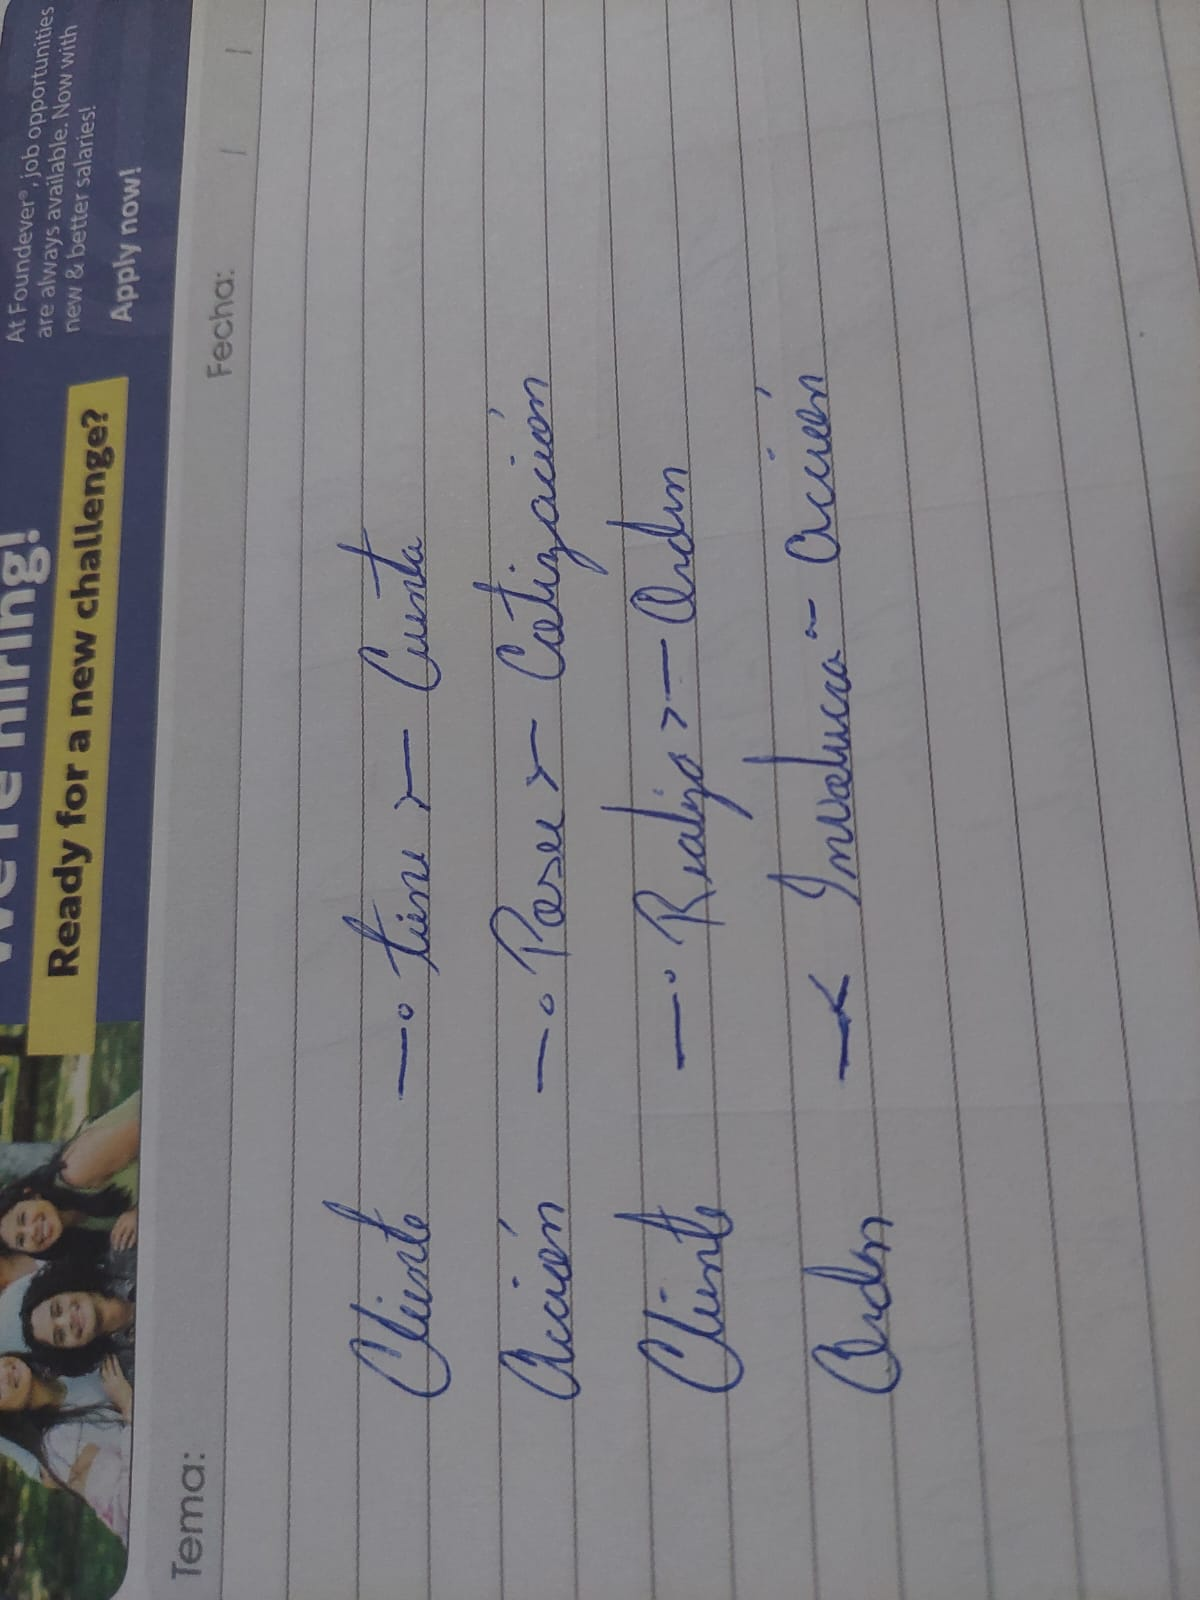 We're hiring!
Ready for a new challenge?
At Foundever®, job opportunities
are always available. Now with
new & better salaries!
Apply now!
Tema:
Fecha: / /
Cliente —o tiene >— Cuenta
Acción —o Posee >— Cotización
Cliente —o Realiza >— Orden
Orden —< Involucra - acción